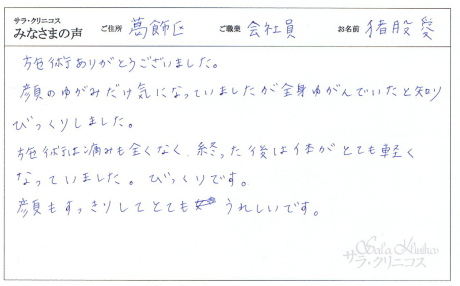 サラ・クリニコス
みなさまの声 ご住所 葛飾区 ご職業 会社員 お名前 猪股 愛
施術ありがとうございました。
顔のゆがみだけ気になっていましたが全身ゆがんでいたと知り
びっくりしました。
施術は痛みも全くなく、終った後は体がとても軽く
なっていました。びっくりです。
顔もすっきりしてとても うれしいです。
Sala Klinikos
サラ・クリニコス